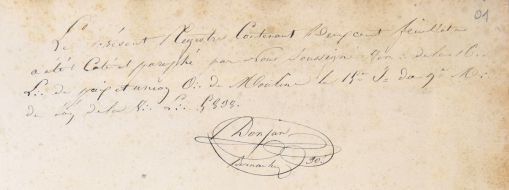 01
Le Présent Registre Contenant Deux cent feuillets
a été Coté et paraphé par Nous soussigné Ven∴ de la R∴
L∴ de paix et union O∴ de Moulin le 15e J∴ du 9e M∴
de l'an de la V∴ L∴ 5838.
Donjan